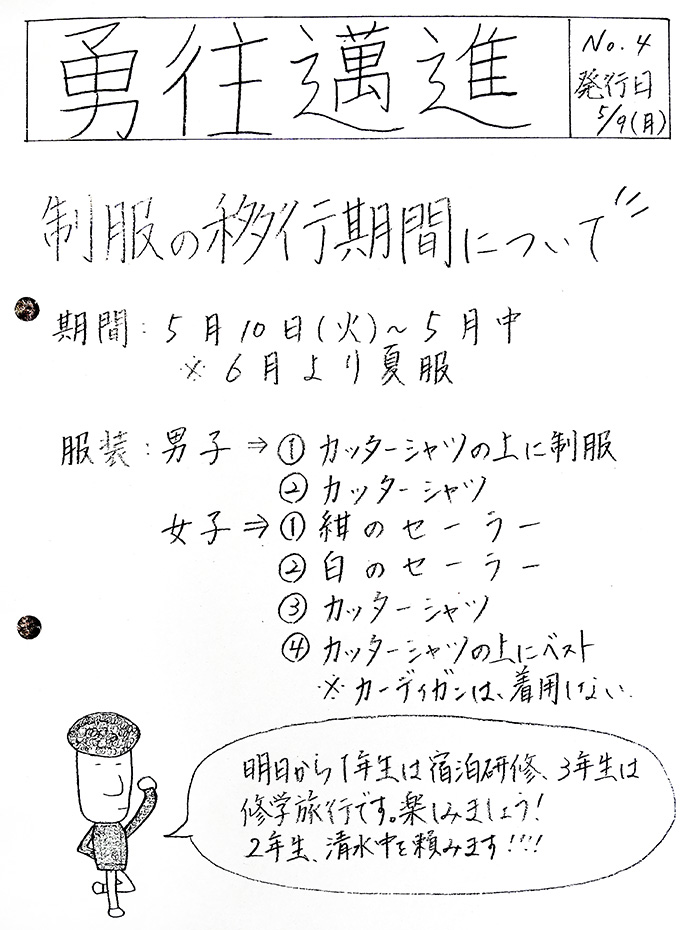 勇往邁進
No.4
発行日
5/9(月)
制服の移行期間について
期間:5月10日(火)~5月中
※6月より夏服
服装:男子⇒①カッターシャツの上に制服
②カッターシャツ
女子⇒①紺のセーラー
②白のセーラー
③カッターシャツ
④カッターシャツの上にベスト
※カーディガンは、着用しない.
明日から1年生は宿泊研修、3年生は
修学旅行です。楽しみましょう!
2年生、清水中を頼みます!!!!